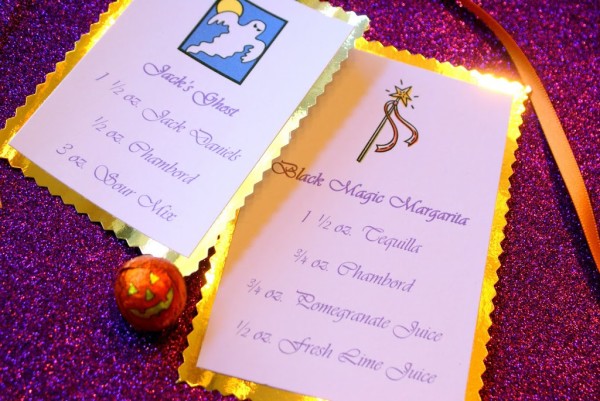 Jack's Ghost
1 ½ oz. Jack Daniels
½ oz. Chambord
3 oz. Sour Mix
Black Magic Margarita
1 ½ oz. Tequilla
¾ oz. Chambord
¾ oz. Pomegranate Juice
½ oz. Fresh Lime Juice